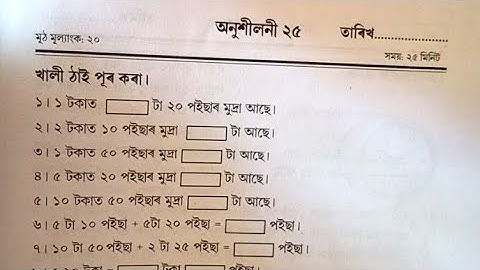 অনুশীলনী ২৫ তাৰিখ....................
মুঠ মূল্যাংক: ২০
সময়: ২৫ মিনিট
খালী ঠাই পূৰ কৰা।
১। ১ টকাত টা ২০ পইছাৰ মুদ্ৰা আছে।
২। ২ টকাত ১০ পইছাৰ মুদ্ৰা টা আছে।
৩। ১ টকাত ৫০ পইছাৰ মুদ্ৰা টা আছে।
৪। ৫ টকাত ২০ পইছাৰ মুদ্ৰা টা আছে।
৫। ১০ টকাত ৫০ পইছাৰ মুদ্ৰা টা আছে।
৬। ৫ টা ১০ পইছা + ৫টা ২০ পইছা = পইছা।
৭। ১০ টা ৫০ পইছা + ২ টা ২৫ পইছা = পইছা।